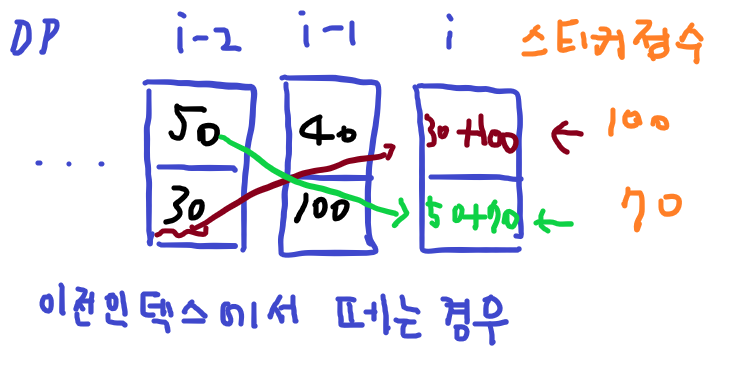 DP i-2 i-1 i 스티커점수
50 40 30+100 ← 100
... 30 100 50+70 ← 70
이전인덱스에서 떼는 경우